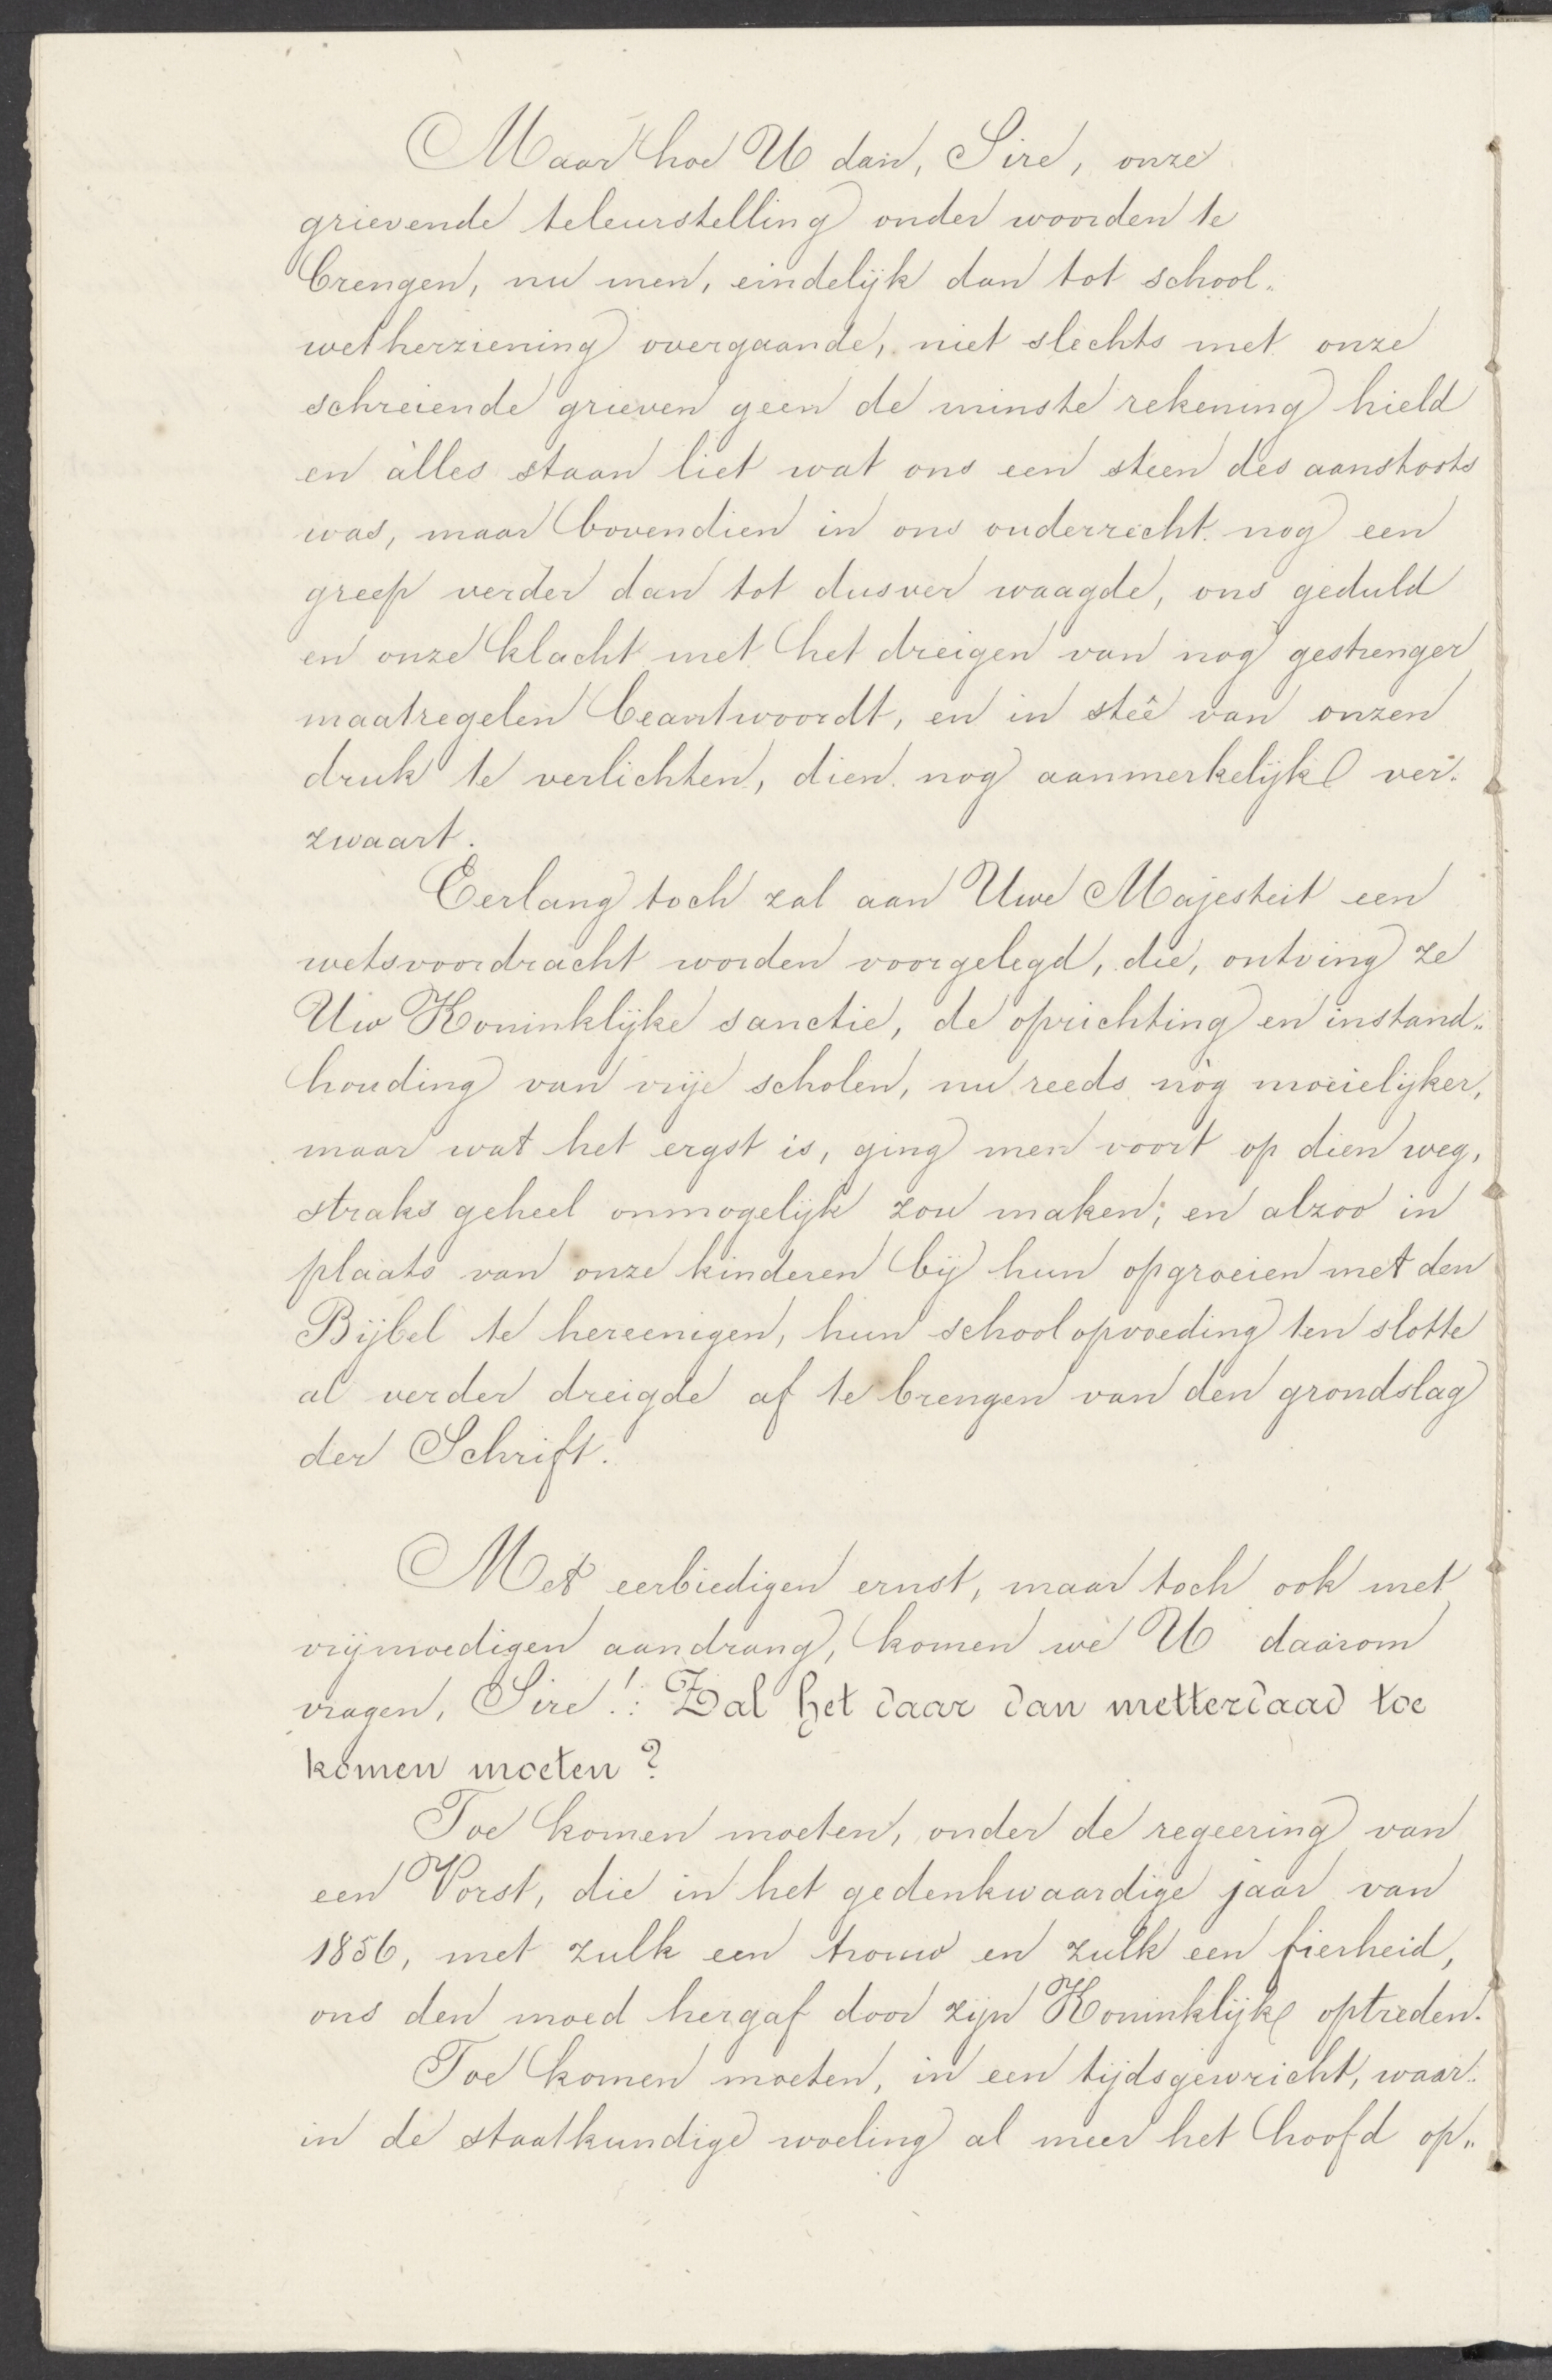 Maar hoe U dan, Sire, onze
grievende teleurstelling onder woorden te
brengen, nu men, eindelijk dan tot school„
wetherziening overgaande, niet slechts met onze
schreiende grieven geen de minste rekening hield
en àlles staan liet wat ons een steen des aanstoots
was, maar bovendien in ons ouderrecht nog een
greep verder dan tot dusver waagde, ons geduld
en onze klacht met het dreigen van nog gestrenger
maatregelen beantwoordt, en in steê van onzen
druk te verlichten, dien nog aanmerkelijk ver„
zwaart.
Eerlang toch zal aan Uwe Majesteit een
wetsvoordracht worden voorgelegd, die, ontving ze
Uw Koninklijke sanctie, de oprichting en instand„
houding van vrije scholen, nu reeds nòg moeielijker,
maar wat het ergst is, ging men voort op dien weg,
straks geheel onmogelijk zou maken; en alzoo in
plaats van onze kinderen bij hun opgroeien met den
Bijbel te hereenigen, hun schoolopvoeding ten slotte
al verder dreigde af te brengen van den grondslag
der Schrift.
Met eerbiedigen ernst, maar toch ook met
vrijmoedigen aandrang, komen we U daarom
vragen, Sire!: Zal het daar dan metterdaad toe
komen moeten?
Toe komen moeten, onder de regeering van
een Vorst, die in het gedenkwaardige jaar van
1856, met zulk een trouw en zulk een fierheid,
ons den moed hergaf door zijn Koninklijk optreden.
Toe komen moeten, in een tijdsgewricht, waar„
in de staatkundige woeling al meer het hoofd op„